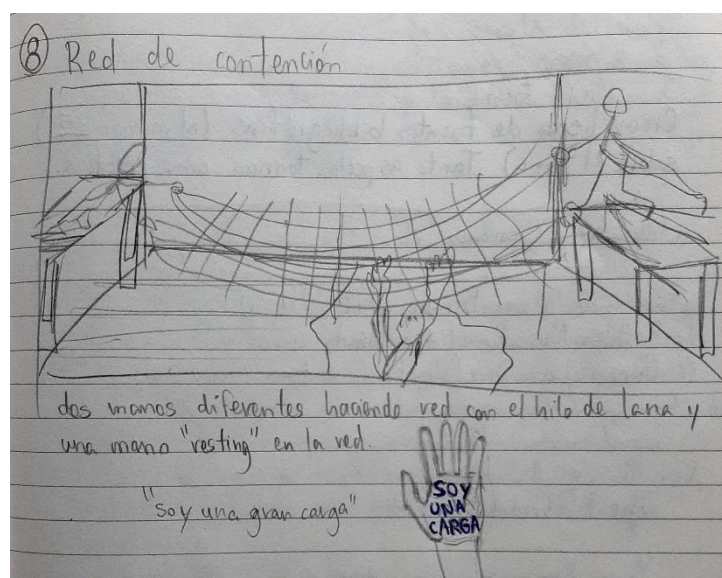 8 Red de contención
dos manos diferentes haciendo red con el hilo de lana y
una mano "resting" en la red.
"soy una gran carga"
SOY
UNA
CARGA